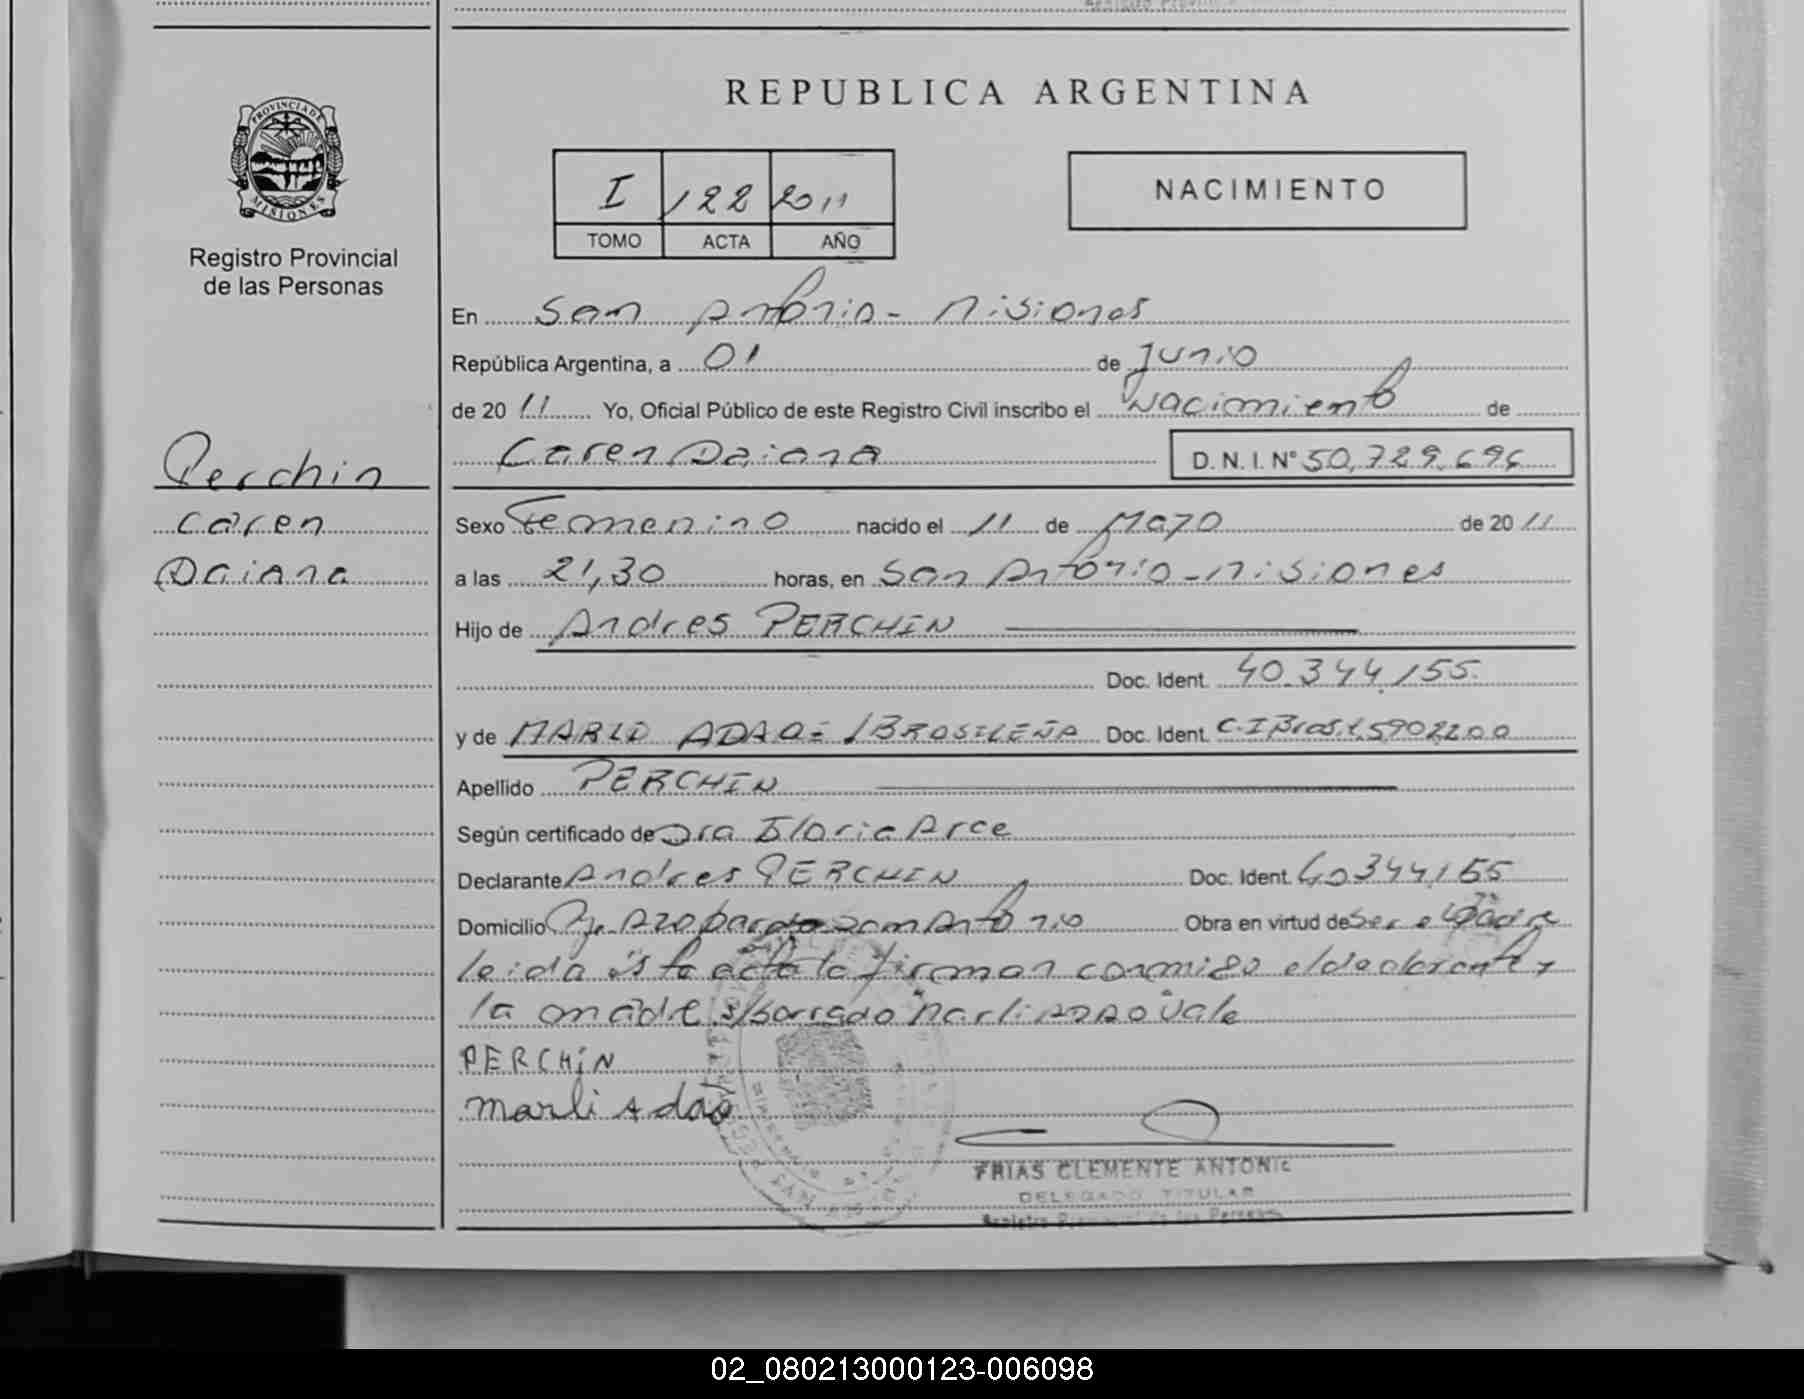 REPUBLICA ARGENTINA
PROVINCIA DE MISIONES
I 122 2011
TOMO ACTA AÑO
NACIMIENTO
Registro Provincial
de las Personas
En San Antonio - Misiones
República Argentina, a 01 de Junio
de 20 11 Yo, Oficial Público de este Registro Civil inscribo el Nacimiento de
Caren Daiana D.N.I. N° 50.729.696
Perchin
Caren
Daiana
Sexo Femenino nacido el 11 de Mayo de 20 11
a las 21,30 horas, en San Antonio - Misiones
Hijo de Andres PERCHIN
Doc. Ident. 40.344.155
y de MARLI ADAO = /BRASILEÑA Doc. Ident. C.I Brasil 5902200
Apellido PERCHIN
Según certificado de Dra Gloria Arce
Declarante Andres PERCHIN Doc. Ident. 40344155
Domicilio Azopardo San Antonio Obra en virtud de Ser el Padre
leida esta acta la firman conmigo el declarante y
la madre s/borrado "Marli ADAO" Vale
PERCHIN
Marli Adão
FRIAS CLEMENTE ANTONIO
DELEGADO TITULAR
Registro Provincial de las Personas
02_080213000123-006098